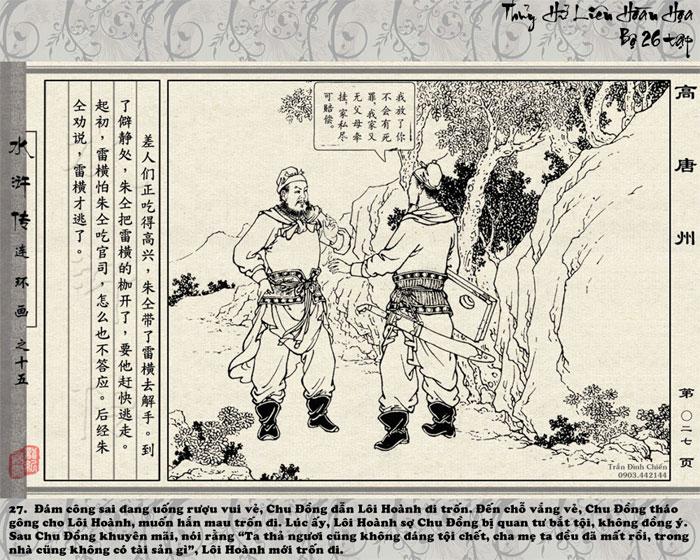 Thủy Hử Liên Hoàn Họa
Bộ 26 tập
高唐州
第〇二七页
水浒传连环画之十五
我放了你
不会有死
罪，我家又
无父母牵
挂，家私尽
可赔偿。
差人们正吃得高兴，朱仝带了雷横去解手。到
了僻静处，朱仝把雷横的枷开了，要他赶快逃走。
起初，雷横怕朱仝吃官司，怎么也不答应。后经朱
仝劝说，雷横才逃了。
Trần Đình Chiến
0903.442144
27. Đám công sai đang uống rượu vui vẻ, Chu Đồng dẫn Lôi Hoành đi trốn. Đến chỗ vắng vẻ, Chu Đồng tháo
gông cho Lôi Hoành, muốn hắn mau trốn đi. Lúc ấy, Lôi Hoành sợ Chu Đồng bị quan tư bắt tội, không đồng ý.
Sau Chu Đồng khuyên mãi, nói rằng “Ta thả ngươi cũng không đáng tội chết, cha mẹ ta đều đã mất rồi, trong
nhà cũng không có tài sản gì”, Lôi Hoành mới trốn đi.